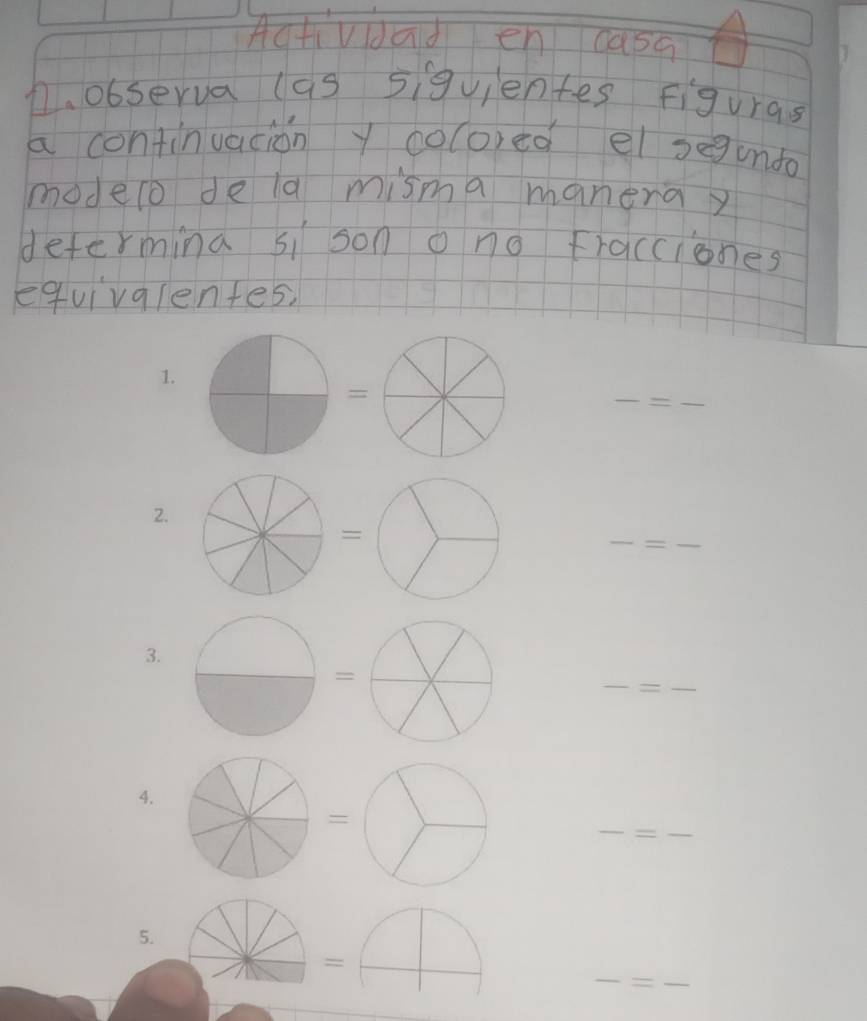 Actividad en casa
1. observa las siguientes Figuras
a continuación y colored el segundo
modelo de la misma manera y
determina si son o no Fracciones
equivalentes.
1. = _ = _
2. = _ = _
3. = _ = _
4. = _ = _
5. = _ = _